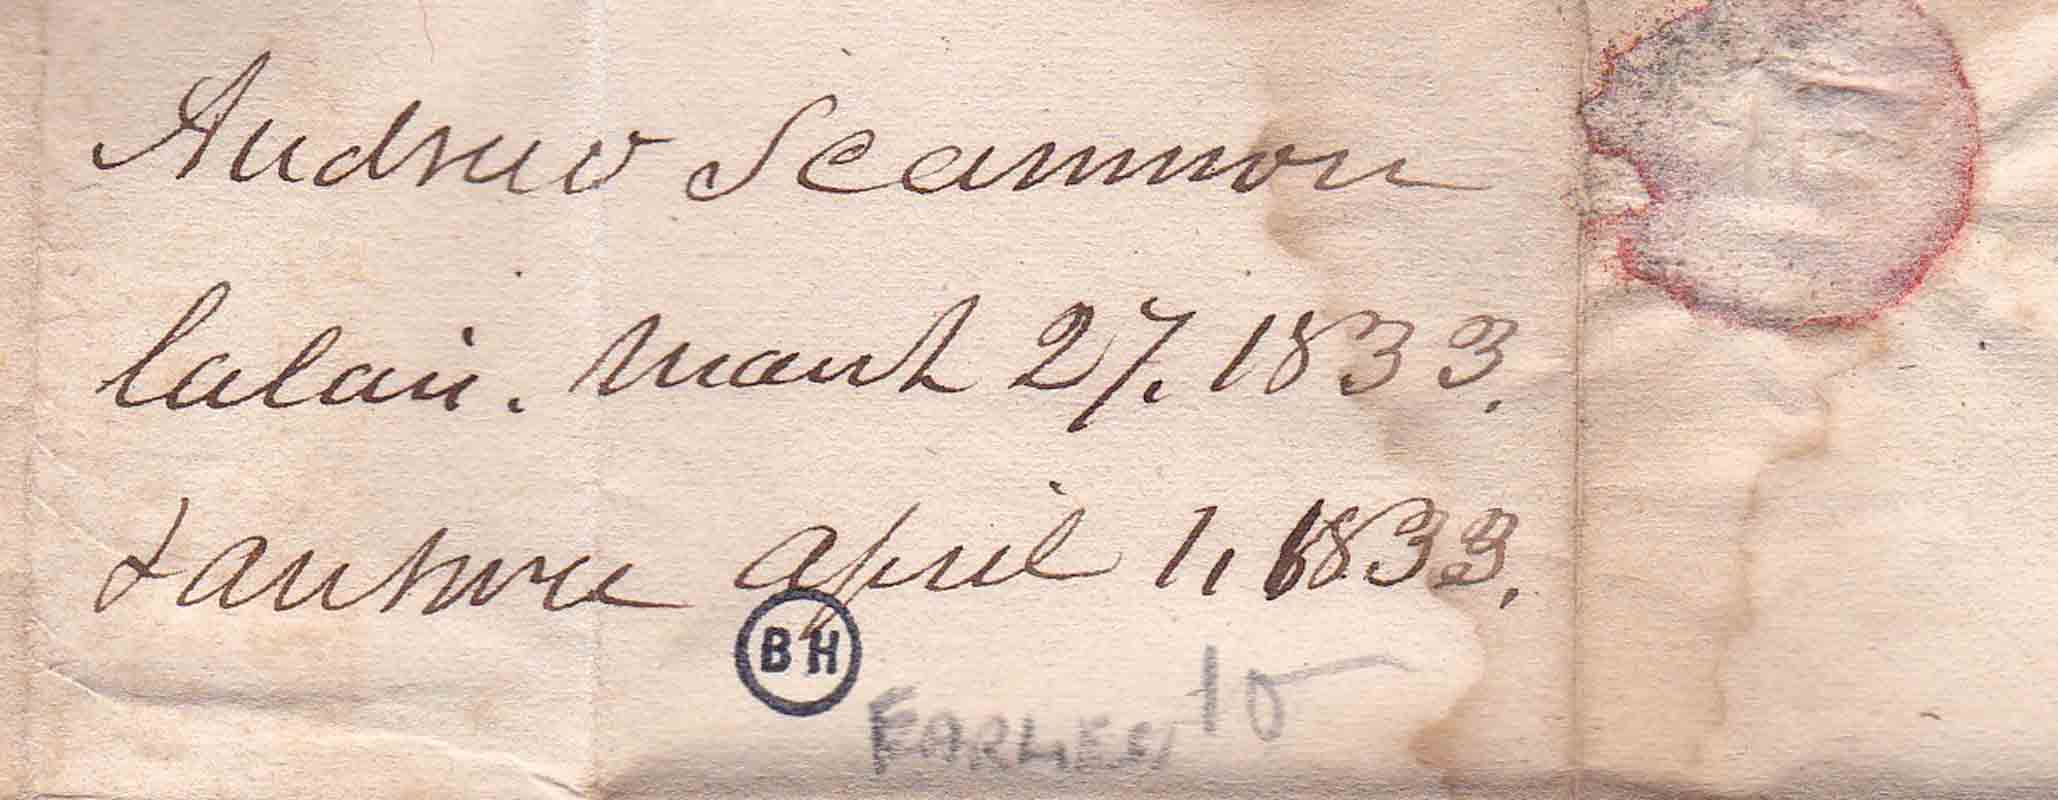 Andrew Scammon
Calais. March 27, 1833.
& answer April 1, 1833.
BH